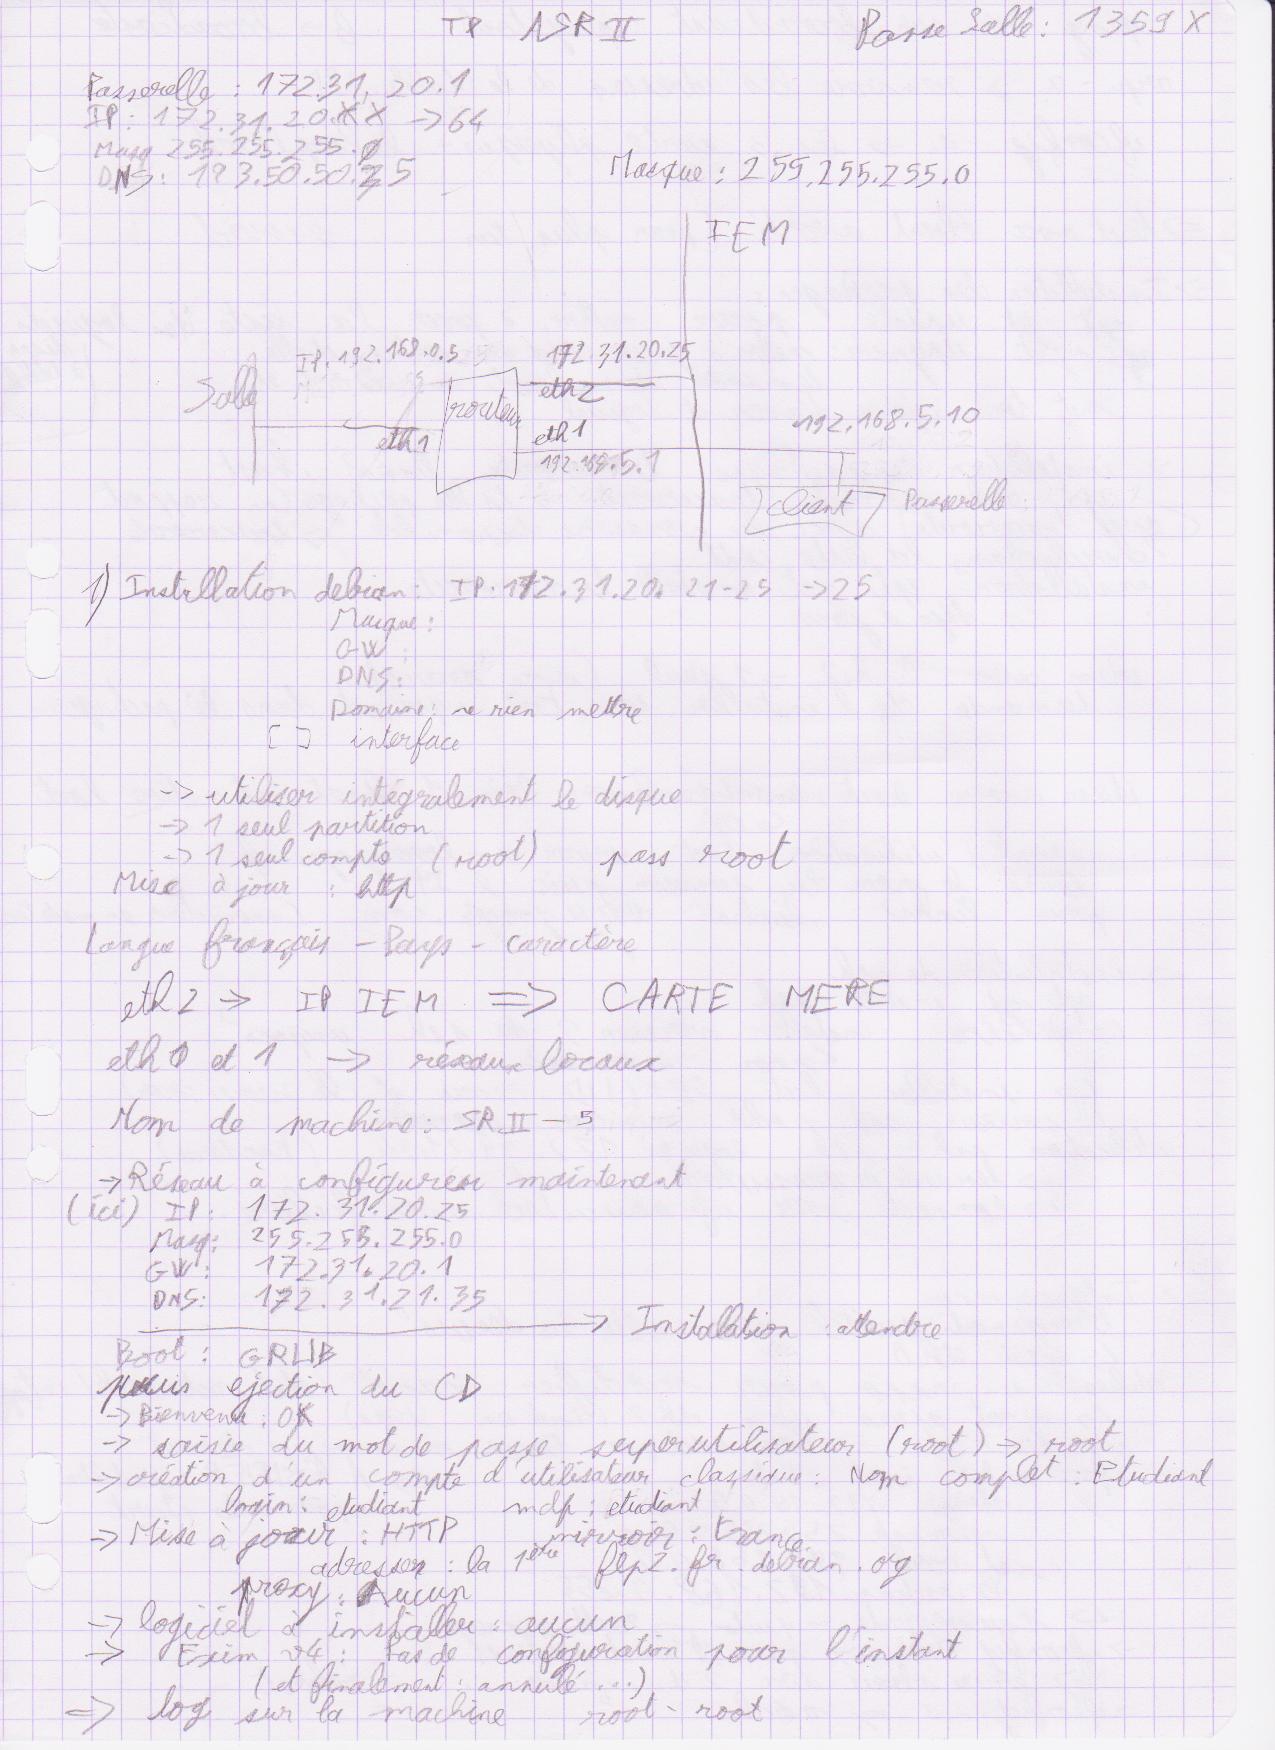 TP ASR II
Passe Salle : 1359X
Passerelle : 172.31.20.1
IP : 172.31.20.XX -> 64
Masq 255.255.255.0
DNS : 193.50.50.25
Masque : 255.255.255.0
IEM
IP. 192.168.0.5
172.31.20.25
Salle
routeur
eth2
eth1
eth1
192.168.5.1
192.168.5.10
client
Passerelle
1) Instllation debian : IP. 172.31.20. 21-25 -> 25
Masque :
GW :
DNS :
Domaine : ne rien mettre
[ ] interface
-> utiliser intégralement le disque
-> 1 seul partition
-> 1 seul compte (root) pass root
Mise à jour : http
Langue français - Pays - caractère
eth2 -> IP IEM => CARTE MERE
eth0 et 1 -> réseaux locaux
Nom de machine : SRII-5
-> Réseau à configurer maintenant
(ici) IP : 172.31.20.25
Masq : 255.255.255.0
GW : 172.31.20.1
DNS : 172.31.21.35
-> Instalation attendre
Boot : GRUB
puis ejection du CD
-> Bienvenu : OK
-> saisie du mot de passe superutilisateur (root) -> root
-> création d'un compte d'utilisateur classique : Nom complet : Etudiant
login : etudiant mdp : etudiant
-> Mise à jour : HTTP mirroir : France
adresser : la 1ère ftp2.fr.debian.org
proxy : Aucun
-> logiciel à installer : aucun
-> Exim v4 : Pas de configuration pour l'instant
(et finalement : annulé ...)
=> log sur la machine root - root